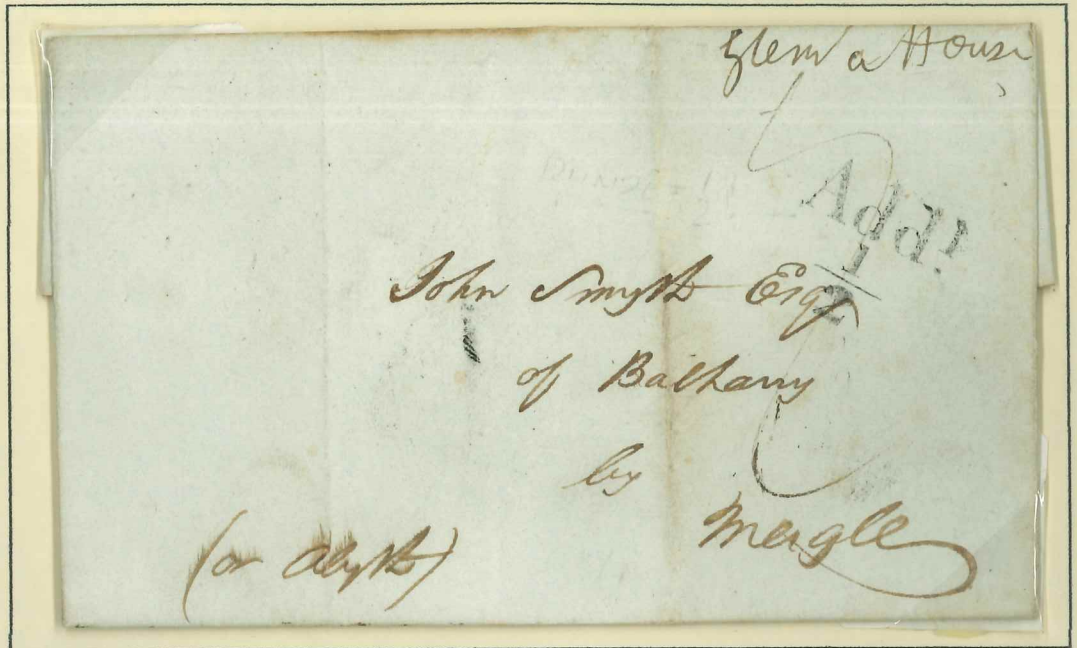 House
Addl
1
2
John Smyth Esqr
of Balharry
by
Meigle
(or Alyth)